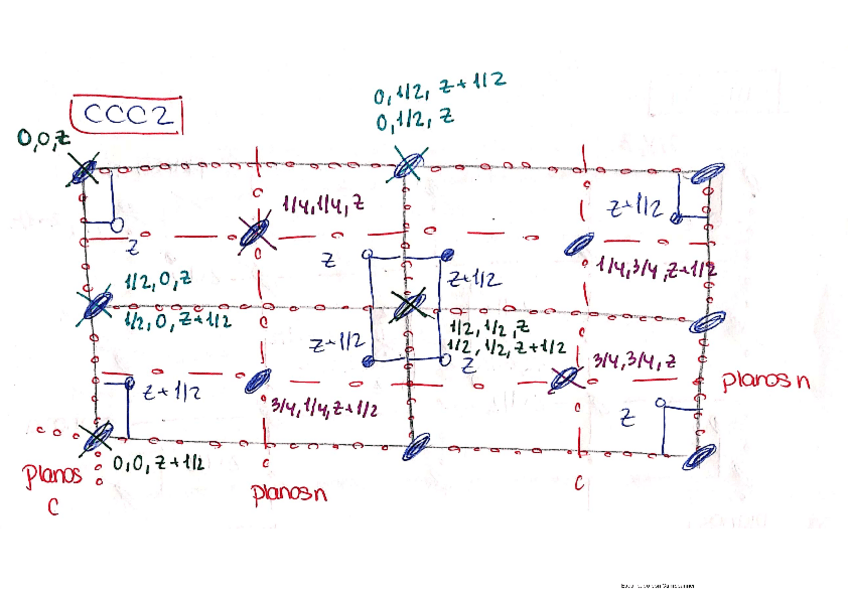 0,1/2, z+1/2
0,1/2, z
CCC2
0,0,z
1/4,1/4, z
z+1/2
z
z
1/4,3/4,z+1/2
1/2,0,z
z+1/2
1/2,0,z+1/2
1/2,1/2,z
1/2,1/2,z+1/2
z+1/2
z
3/4,3/4,z
planos n
z+1/2
3/4,1/4,z+1/2
z
0,0,z+1/2
planos
c
planos n
c
c
c
c
c